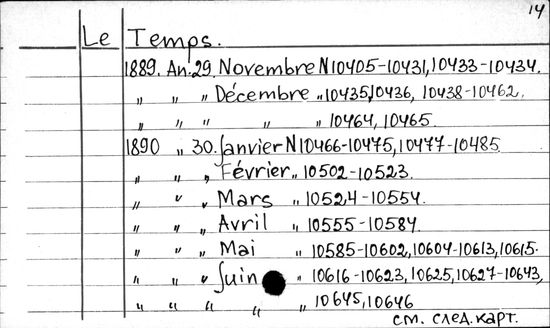 14
Le Temps.
1889. An. 29. Novembre N10405-10431, 10433-10434.
„ „ „ Décembre „ 10435, 10436, 10438-10462.
„ „ „ „ „ 10464, 10465.
1890 „ 30. Janvier N10466-10475, 10477-10485.
„ „ „ Février „ 10502-10523.
„ „ „ Mars „ 10524-10554.
„ „ „ Avril „ 10555-10584.
„ „ „ Mai „ 10585-10602, 10604-10613, 10615.
„ „ „ Juin „ 10616-10623, 10625, 10627-10643,
„ „ „ „ „ 10645, 10646
см. след. карт.